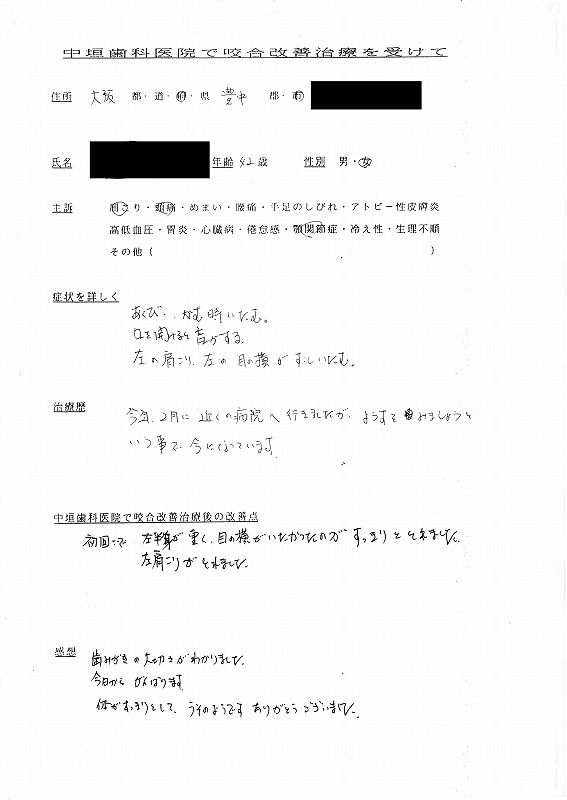 中垣歯科医院で咬合改善治療を受けて
住所 大阪 都・道・府・県 豊中 郡・市
氏名 年齢 42歳 性別 男・女
主訴 肩こり・頭痛・めまい・腰痛・手足のしびれ・アトピー性皮膚炎
高低血圧・胃炎・心臓病・倦怠感・顎関節症・冷え性・生理不順
その他( )
症状を詳しく
あくび、かむ時いたむ。
口を開けると音がする。
左の肩こり、左の目の横がすこしいたむ。
治療歴
今年、2月に近くの病院へ行きましたが、ようすをみましょうと
いう事で、今になっています。
中垣歯科医院で咬合改善治療後の改善点
初回で 左半身が重く、目の横がいたかったのが すっきりととれました。
左肩こりがとれました。
感想
歯みがきの大切さがわかりました。
今日からがんばります。
体がすっきりとして、うそのようです ありがとうございました。